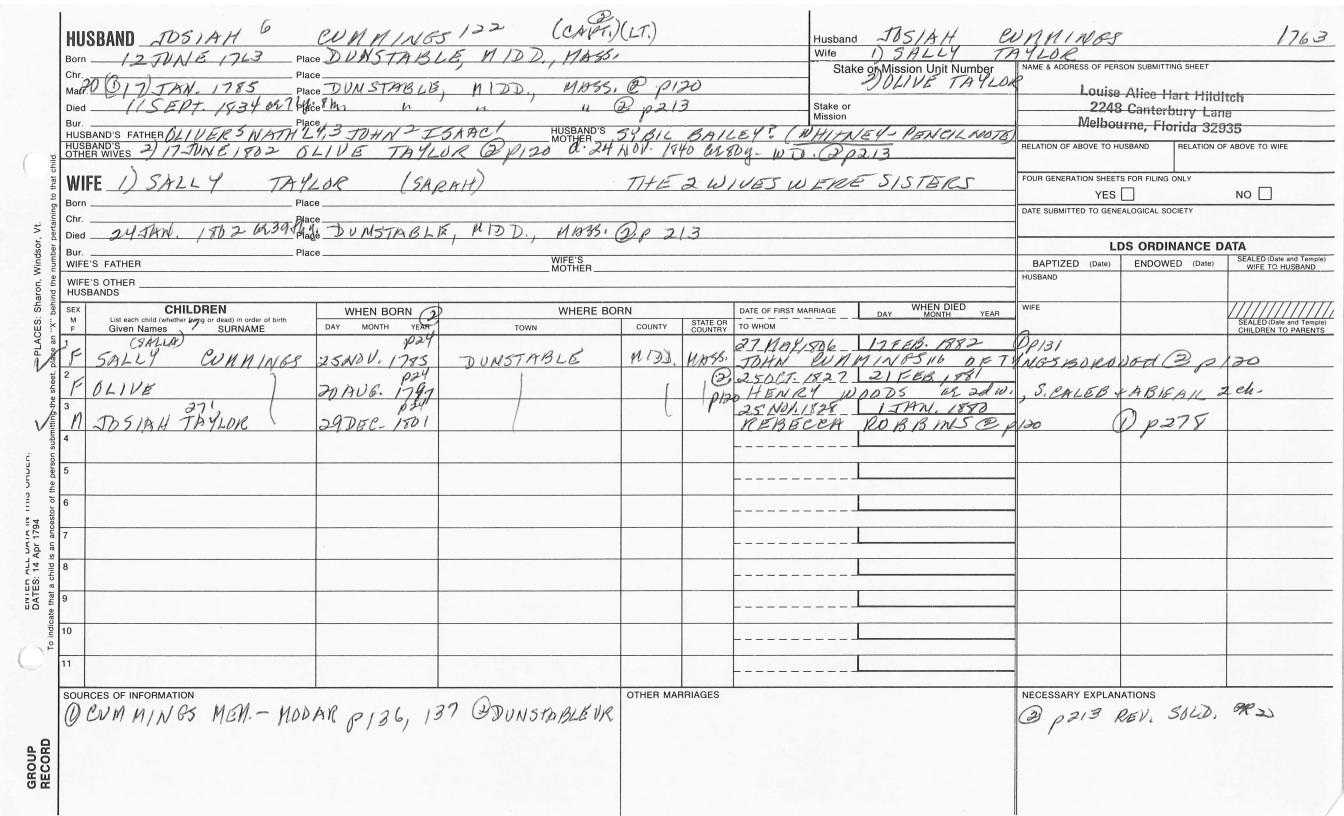 HUSBAND JOSIAH 6 CUMMINGS 122 (CAPT.) ② (LT.)
Born 12 JUNE 1763 Place DUNSTABLE, MIDD., MASS.
Chr. Place
Mar. 20 ① 17 JAN. 1785 Place DUNSTABLE, MIDD., MASS. ② p120
Died 11 SEPT. 1834 or 71y. 8m. Place " " " " ② p213
Bur. Place
HUSBAND'S FATHER OLIVER 5 NATH'L 4,3 JOHN 2 ISAAC 1 HUSBAND'S MOTHER SYBIL BAILEY? (WHITNEY - PENCIL NOTE)
HUSBAND'S OTHER WIVES 2) 17 JUNE 1802 OLIVE TAYLOR ② p120 d. 24 NOV. 1840 WD. ② p213
Husband JOSIAH CUMMINGS 1763
Wife 1) SALLY TAYLOR
Stake or Mission Unit Number
2) OLIVE TAYLOR
Stake or Mission
NAME & ADDRESS OF PERSON SUBMITTING SHEET
Louise Alice Hart Hilditch
2248 Canterbury Lane
Melbourne, Florida 32935
RELATION OF ABOVE TO HUSBAND RELATION OF ABOVE TO WIFE
FOUR GENERATION SHEETS FOR FILING ONLY
YES NO
DATE SUBMITTED TO GENEALOGICAL SOCIETY
WIFE 1) SALLY TAYLOR (SARAH) THE 2 WIVES WERE SISTERS
Born Place
Chr. Place
Died 24 JAN. 1802 Place DUNSTABLE, MIDD., MASS. ② p 213
Bur. Place
WIFE'S FATHER WIFE'S MOTHER
WIFE'S OTHER HUSBANDS
LDS ORDINANCE DATA
BAPTIZED (Date) ENDOWED (Date) SEALED (Date and Temple) WIFE TO HUSBAND
HUSBAND
WIFE
SEALED (Date and Temple) CHILDREN TO PARENTS
SEX M F CHILDREN WHEN BORN ② WHERE BORN DATE OF FIRST MARRIAGE WHEN DIED
List each child (whether living or dead) in order of birth
Given Names SURNAME DAY MONTH YEAR TOWN COUNTY STATE OR COUNTRY TO WHOM DAY MONTH YEAR
1 (SALLA) p24 27 MAY 1806 17 FEB. 1882 ① p131
F SALLY CUMMINGS 25 NOV. 1785 DUNSTABLE MIDD. MASS. JOHN CUMMINGS 116 OF TYNGSBOROUGH ② p120
2 p24 ② 25 OCT. 1827 21 FEB. 1881
F OLIVE 20 AUG. 1797 p120 HENRY WOODS as 2d w., S. CALEB + ABIGAIL 2 ch.
3 271 p24 25 NOV. 1828 1 JAN. 1880
M JOSIAH TAYLOR 29 DEC. 1801 REBECCA ROBBINS ② p120 ① p278
4
5
6
7
8
9
10
11
SOURCES OF INFORMATION
① CUMMINGS MEM. - MODAR p136, 137 ② DUNSTABLE VR
OTHER MARRIAGES
NECESSARY EXPLANATIONS
② p213 REV. SOLD.
GROUP RECORD
ENTER ALL DATA IN THIS ORDER:
DATES: 14 Apr 1794
PLACES: Sharon, Windsor, Vt.
To indicate that a child is an ancestor of the person submitting the sheet, place an "X" behind the number pertaining to that child.